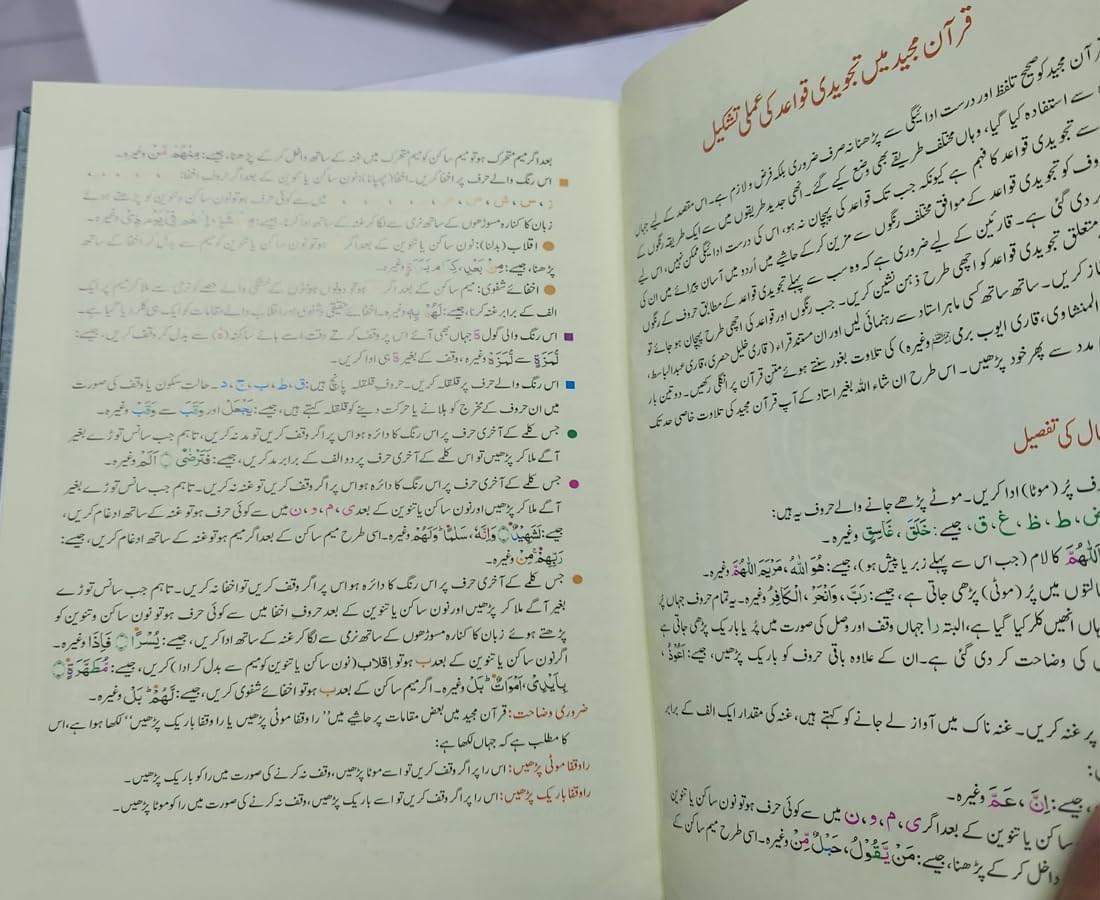 قرآن مجید میں تجویدی قواعد کی عملی تشکیل
قرآن مجید کو صحیح تلفظ اور درست ادائیگی سے پڑھنا نہ صرف ضروری بلکہ فرض و لازم ہے۔ اس مقصد کے لیے جہاں
سے استفادہ کیا گیا، وہاں مختلف طریقے بھی وضع کیے گئے۔ انھی جدید طریقوں میں سے ایک طریقہ رنگوں کے
سے تجویدی قواعد کا فہم ہے کیونکہ جب تک قواعد کی پہچان نہ ہو، اس کی درست ادائیگی ممکن نہیں، اس لیے
حروف کو تجویدی قواعد کے موافق مختلف رنگوں سے مزین کر کے حاشیے میں اُردو میں آسان پیرائے میں ان کی
کر دی گئی ہے۔ قارئین کے لیے ضروری ہے کہ وہ سب سے پہلے تجویدی قواعد کے مطابق حروف کے رنگوں
متعلق تجویدی قواعد کو اچھی طرح ذہن نشین کریں۔ جب رنگوں اور قواعد کی اچھی طرح پہچان ہو جائے تو
کریں۔ ساتھ ساتھ کسی ماہر استاد سے رہنمائی لیں اور ان مستند قراء (قاری خلیل حصری، قاری عبدالباسط،
المنشاوی، قاری ایوب برمی وغیرہ) کی تلاوت بغور سنتے ہوئے متن قرآن پر انگلی رکھیں۔ دو تین بار
مدد سے پھر خود پڑھیں۔ اس طرح ان شاء اللہ بغیر استاد کے آپ قرآن مجید کی تلاوت خاصی حد تک
کی تفصیل
پُر (موٹا) ادا کریں۔ موٹے پڑھے جانے والے حروف یہ ہیں:
ض، ط، ظ، غ، ق، جیسے: خَلَقَ، غَاسِقٍ وغیرہ۔
اَللّٰهُمَّ کا لام (جب اس سے پہلے زبر یا پیش ہو)، جیسے: هُوَ اللّٰهُ، مَرْيَمَ اللّٰهُمَّ وغیرہ۔
حالتوں میں پُر (موٹی) پڑھی جاتی ہے، جیسے: رَبَّ، وَانْحَرْ، الْكَافِرُ وغیرہ۔ یہ تمام حروف جہاں پُر
وہاں انھیں کلر کیا گیا ہے، البتہ را جہاں وقف اور وصل کی صورت میں پُر یا باریک پڑھی جاتی ہے
کی وضاحت کر دی گئی ہے۔ ان کے علاوہ باقی حروف کو باریک پڑھیں، جیسے: اَعُوْذُ،
پر غنہ کریں۔ غنہ ناک میں آواز لے جانے کو کہتے ہیں، غنہ کی مقدار ایک الف کے برابر
جیسے: اِنَّ، عَمَّ وغیرہ۔
ساکن یا تنوین کے بعد اگر ی، م، و، ن میں سے کوئی حرف ہو تو نون ساکن یا تنوین
داخل کر کے پڑھنا، جیسے: مَنْ يَّقُوْلُ، حَبْلٌ مِّنْ وغیرہ۔ اسی طرح میم ساکن کے
بعد اگر میم متحرک ہو تو میم ساکن کو میم متحرک میں غنہ کے ساتھ داخل کر کے پڑھنا، جیسے: مِنْهُمْ مَّنْ وغیرہ۔
اس رنگ والے حرف پر اخفا کریں۔ اخفا (چھپانا): نون ساکن یا تنوین کے بعد اگر حروف اخفا:
میں سے کوئی حرف ہو تو نون ساکن و تنوین کو پڑھتے ہوئے
زبان کا کنارہ مسوڑھوں کے ساتھ نرمی سے لگا کر غنہ کے ساتھ ادا کرنا، جیسے: وغیرہ۔
اقلاب (بدلنا): نون ساکن یا تنوین کے بعد اگر ہو تو نون ساکن و تنوین کو میم سے بدل کر اخفا کے ساتھ
پڑھنا، جیسے: مِنْۢ بَعْدِ، وغیرہ۔
اخفائے شفوی: میم ساکن کے بعد اگر ہو تو دونوں ہونٹوں کے خشکی والے حصے کو نرمی سے ملا کر میم پر ایک
الف کے برابر غنہ کرنا، جیسے: لَهُمْ بِهٖ وغیرہ۔ اخفائے حقیقی و شفوی اور اقلاب والے مقامات کو ایک ہی کلر دیا گیا ہے۔
اس رنگ والی گول ة جہاں بھی آئے اس پر وقف کرتے وقت اسے ہائے ساکنہ (ہ) سے بدل کر وقف کریں، جیسے:
لُّمَزَةٍ سے لُّمَزَهْ وغیرہ، وقف کے بغیر ة ہی ادا کریں۔
اس رنگ والے حرف پر قلقلہ کریں۔ حروف قلقلہ پانچ ہیں: ق، ط، ب، ج، د۔ حالت سکون یا وقف کی صورت
میں ان حروف کے مخرج کو ہلانے یا حرکت دینے کو قلقلہ کہتے ہیں، جیسے: يَجْعَلْ اور وَقَبَ سے وَقَبْ وغیرہ۔
جس کلمے کے آخری حرف پر اس رنگ کا دائرہ ہو اس پر اگر وقف کریں تو مد نہ کریں، تاہم جب سانس توڑے بغیر
آگے ملا کر پڑھیں تو اس کلمے کے آخری حرف پر دو الف کے برابر مد کریں، جیسے: فَتَرْضٰى ۞ اَلَمْ وغیرہ۔
جس کلمے کے آخری حرف پر اس رنگ کا دائرہ ہو اس پر اگر وقف کریں تو غنہ نہ کریں۔ تاہم جب سانس توڑے بغیر
آگے ملا کر پڑھیں اور نون ساکن یا تنوین کے بعد ی، م، و، ن میں سے کوئی حرف ہو تو غنہ کے ساتھ ادغام کریں،
جیسے: لَشَهِيْدٌ ۞ وَاِنَّهٗ، سَلٰمًا وَلَهُمْ وغیرہ۔ اسی طرح میم ساکن کے بعد اگر میم ہو تو غنہ کے ساتھ ادغام کریں، جیسے:
رَبِّهِمْ مِنْ وغیرہ۔
جس کلمے کے آخری حرف پر اس رنگ کا دائرہ ہو اس پر اگر وقف کریں تو اخفا نہ کریں۔ تاہم جب سانس توڑے
بغیر آگے ملا کر پڑھیں اور نون ساکن یا تنوین کے بعد حروف اخفا میں سے کوئی حرف ہو تو نون ساکن و تنوین کو
پڑھتے ہوئے زبان کا کنارہ مسوڑھوں کے ساتھ نرمی سے لگا کر غنہ کے ساتھ ادا کریں، جیسے: يُسْرًا ۞ فَاِذَا وغیرہ۔
اگر نون ساکن یا تنوین کے بعد ب ہو تو اقلاب (نون ساکن یا تنوین کو میم سے بدل کر ادا) کریں، جیسے: مُّطَهَّرَةٍ ۞
بِاَيْدِيْ، اَمْوَاتٌ بَلْ وغیرہ۔ اگر میم ساکن کے بعد ب ہو تو اخفائے شفوی کریں، جیسے: لَهُمْ بَلْ وغیرہ۔
ضروری وضاحت: قرآن مجید میں بعض مقامات پر حاشیے میں ”را وقفا موٹی پڑھیں یا را وقفا باریک پڑھیں“ لکھا ہوا ہے، اس
کا مطلب ہے کہ جہاں لکھا ہے:
را وقفا موٹی پڑھیں: اس را پر اگر وقف کریں تو اسے موٹا پڑھیں، وقف نہ کرنے کی صورت میں را کو باریک پڑھیں۔
را وقفا باریک پڑھیں: اس را پر اگر وقف کریں تو اسے باریک پڑھیں، وقف نہ کرنے کی صورت میں را کو موٹا پڑھیں۔